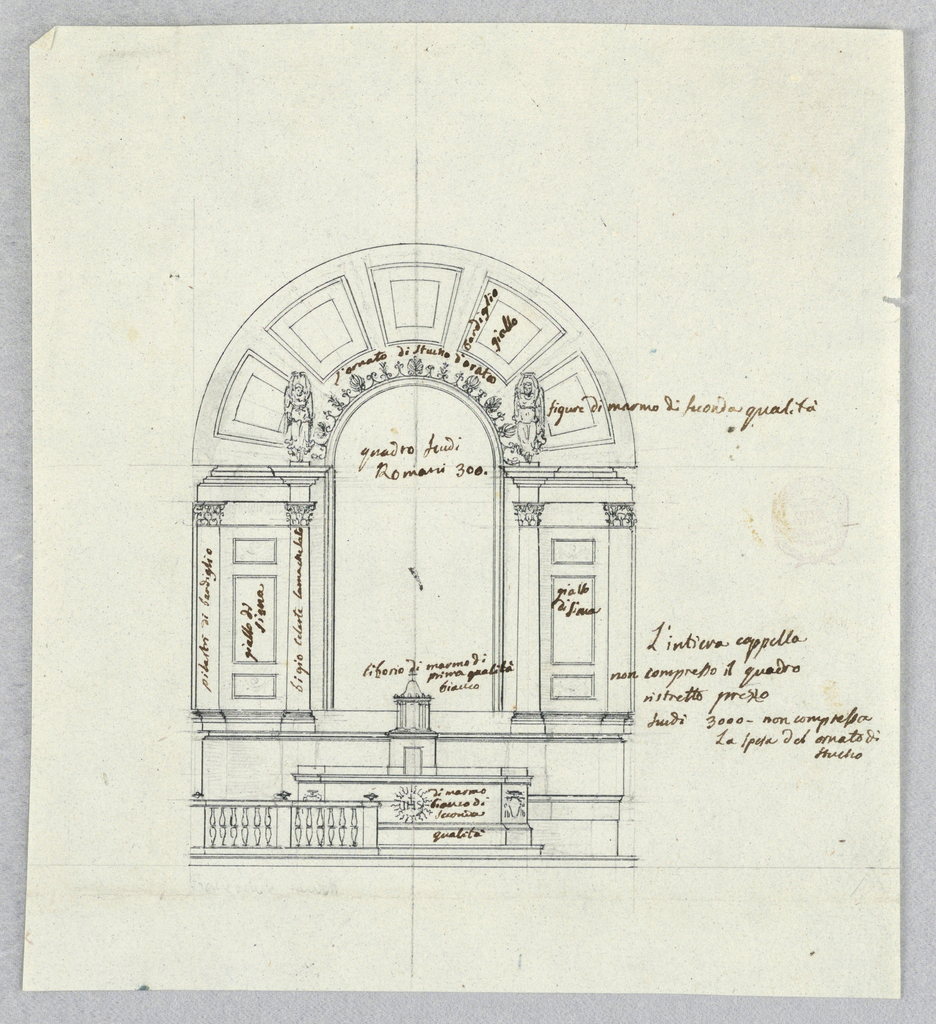 bardiglio
giallo
l'ornato di stucho d'orato
figure di marmo di seconda qualità
quadro scudi
Romani 300.
pilastri di bardiglio
giallo di
siena
bigio celeste lumachelato
giallo
di siena
tiborio di marmo di
prima qualità
bianco
L'intiera cappella
non compresso il quadro
ristretto prezzo
scudi 3000 - non compressa
La spesa del ornato di
stucho
IHS
di marmo
bianco di
seconda
qualità